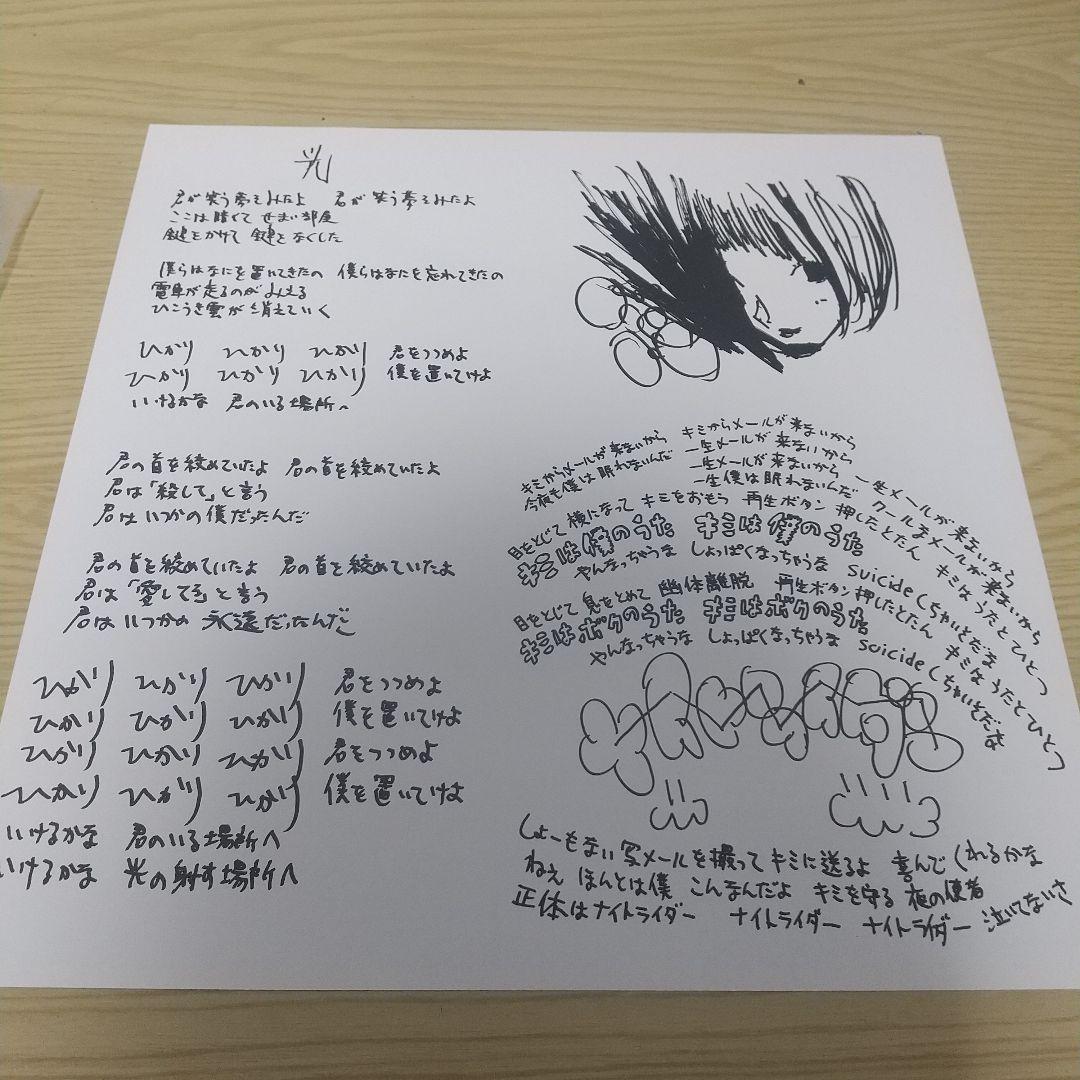 光
君が笑う夢をみたよ　君が笑う夢をみたよ
ここは暗くて せまい部屋
鍵をかけて 鍵をなくした
僕らはなにを置いてきたの　僕らはなにを忘れてきたの
電車が走るのがみえる
ひこうき雲が消えていく
ひかり　ひかり　ひかり　君をつつめよ
ひかり　ひかり　ひかり　僕を置いてけよ
いけるかな　君のいる場所へ
君の首を絞めていたよ　君の首を絞めていたよ
君は「殺して」と言う
君はいつかの僕だったんだ
君の首を絞めていたよ　君の首を絞めていたよ
君は「愛してる」と言う
君はいつかの永遠だったんだ
ひかり　ひかり　ひかり　君をつつめよ
ひかり　ひかり　ひかり　僕を置いてけよ
ひかり　ひかり　ひかり　君をつつめよ
ひかり　ひかり　ひかり　僕を置いてけよ
いけるかな　君のいる場所へ
いけるかな　光の射す場所へ
キミからメールが来ないから　キミからメールが来ないから
今夜も僕は眠れないんだ　一生メールが来ないから
一生メールが来ないから　一生メールが来ないから
一生僕は眠れないんだ　クールなメールが来ないから
目をとじて 横になって キミをおもう　再生ボタン 押したとたん　キミは うたとひとつ
キミは僕のうた　キミは僕のうた
やんなっちゃうな　しょっぱくなっちゃうな　suicideしちゃいそだな
目をとじて 息をとめて 幽体離脱　再生ボタン押したとたん　キミは うたとひとつ
キミはボクのうた　キミはボクのうた
やんなっちゃうな　しょっぱくなっちゃうな　suicideしちゃいそだな
しょーもない写メールを撮って キミに送るよ　喜んでくれるかな
ねぇ ほんとは僕 こんなんだよ　キミを守る 夜の使者
正体はナイトライダー　ナイトライダー　ナイトライダー 泣いてないさ